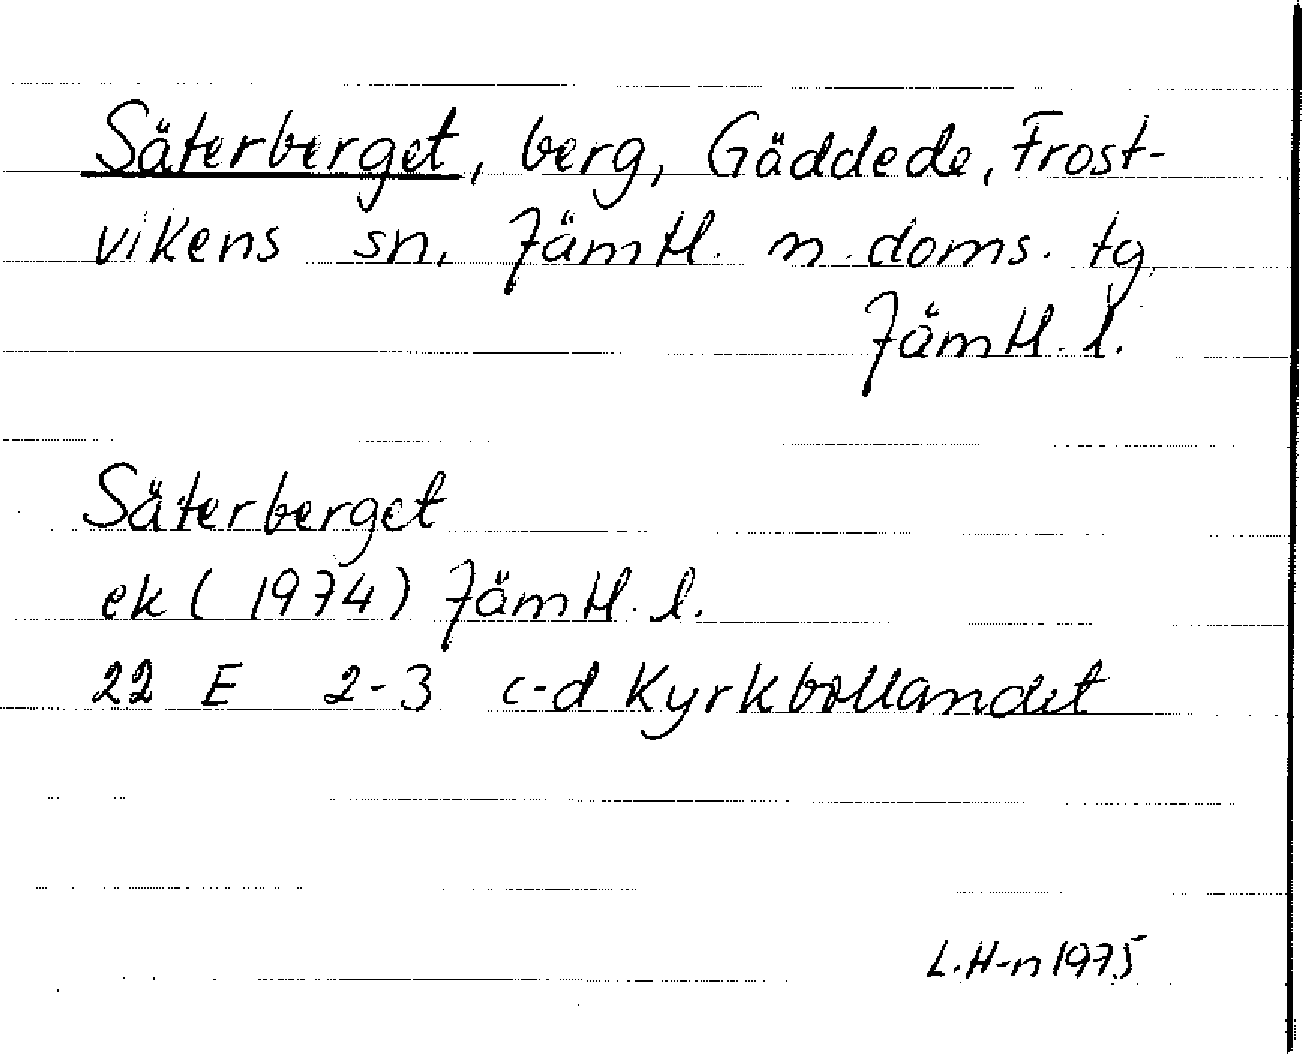 Säterberget, berg, Gäddede, Frost-
vikens sn, Jämtl. n. doms. tg.
Jämtl. l.
Säterberget
ek (1974) Jämtl. l.
22 E 2-3 c-d Kyrkbollandet
L.H-n 1975